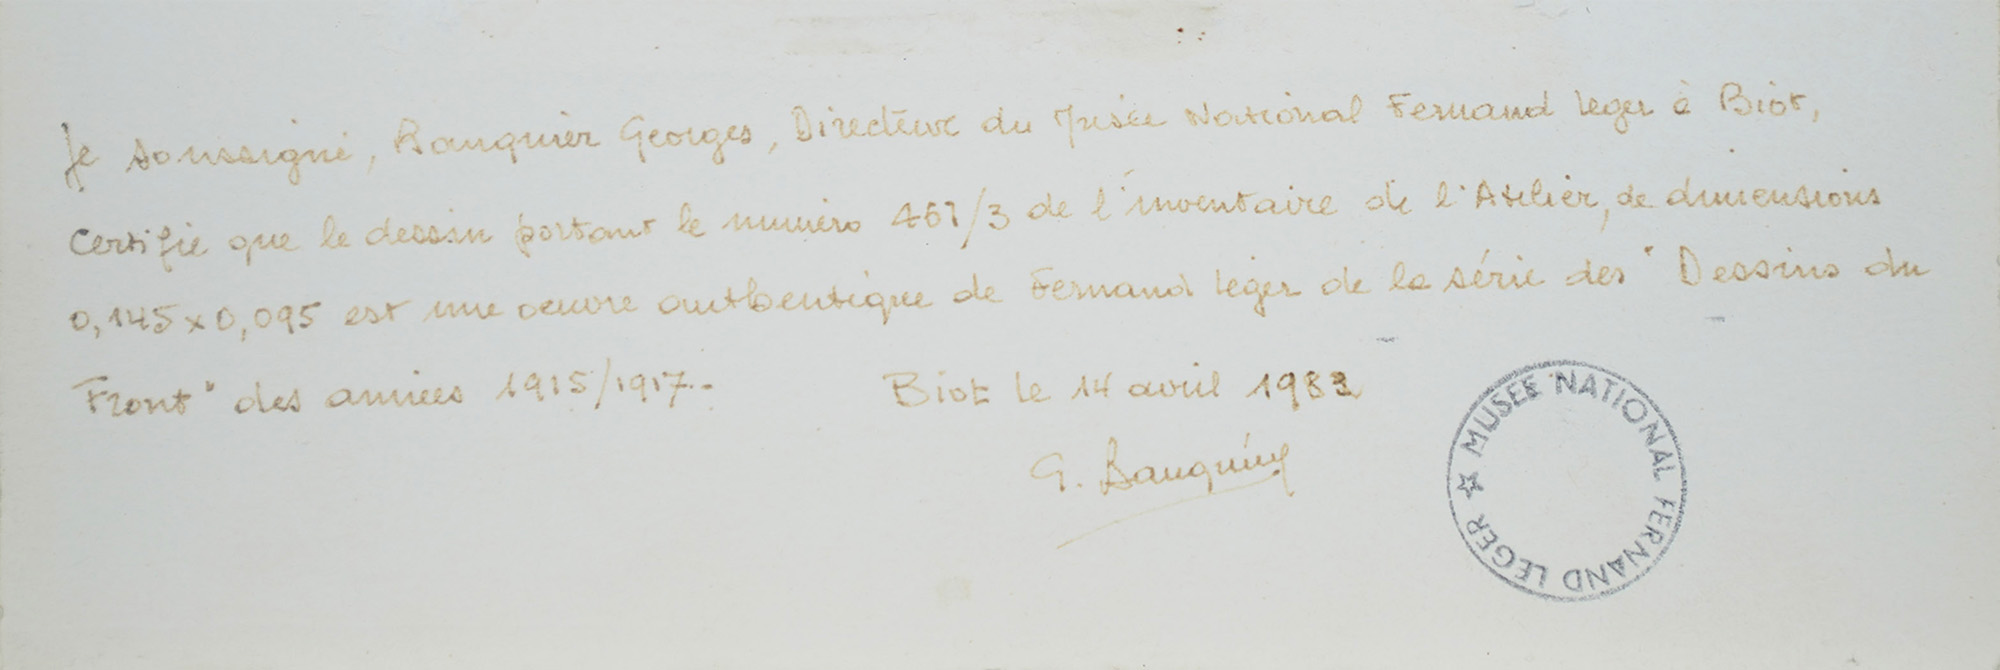 Je soussigné, Bauquier Georges, Directeur du Musée National Fernand Leger à Biot,
Certifie que le dessin portant le numéro 467/3 de l'inventaire de l'Atelier, de dimensions
0,145 x 0,095 est une oeuvre authentique de Fernand Léger de la série des "Dessins du
Front" des années 1915/1917.-
Biot le 14 avril 1982
G. Bauquier
MUSEE NATIONAL FERNAND LEGER